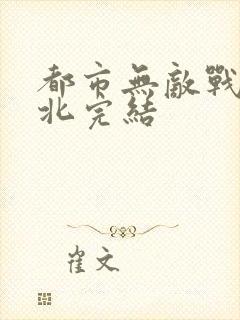 都市無敵戰
北完結
崔文